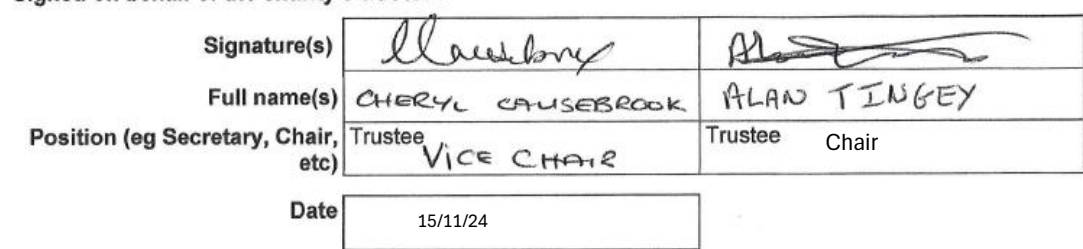 Signature(s)
Full name(s) CHERYL CAUSEBROOK ALAN TINGEY
Position (eg Secretary, Chair, Trustee Trustee Chair
etc) VICE CHAIR
Date 15/11/24